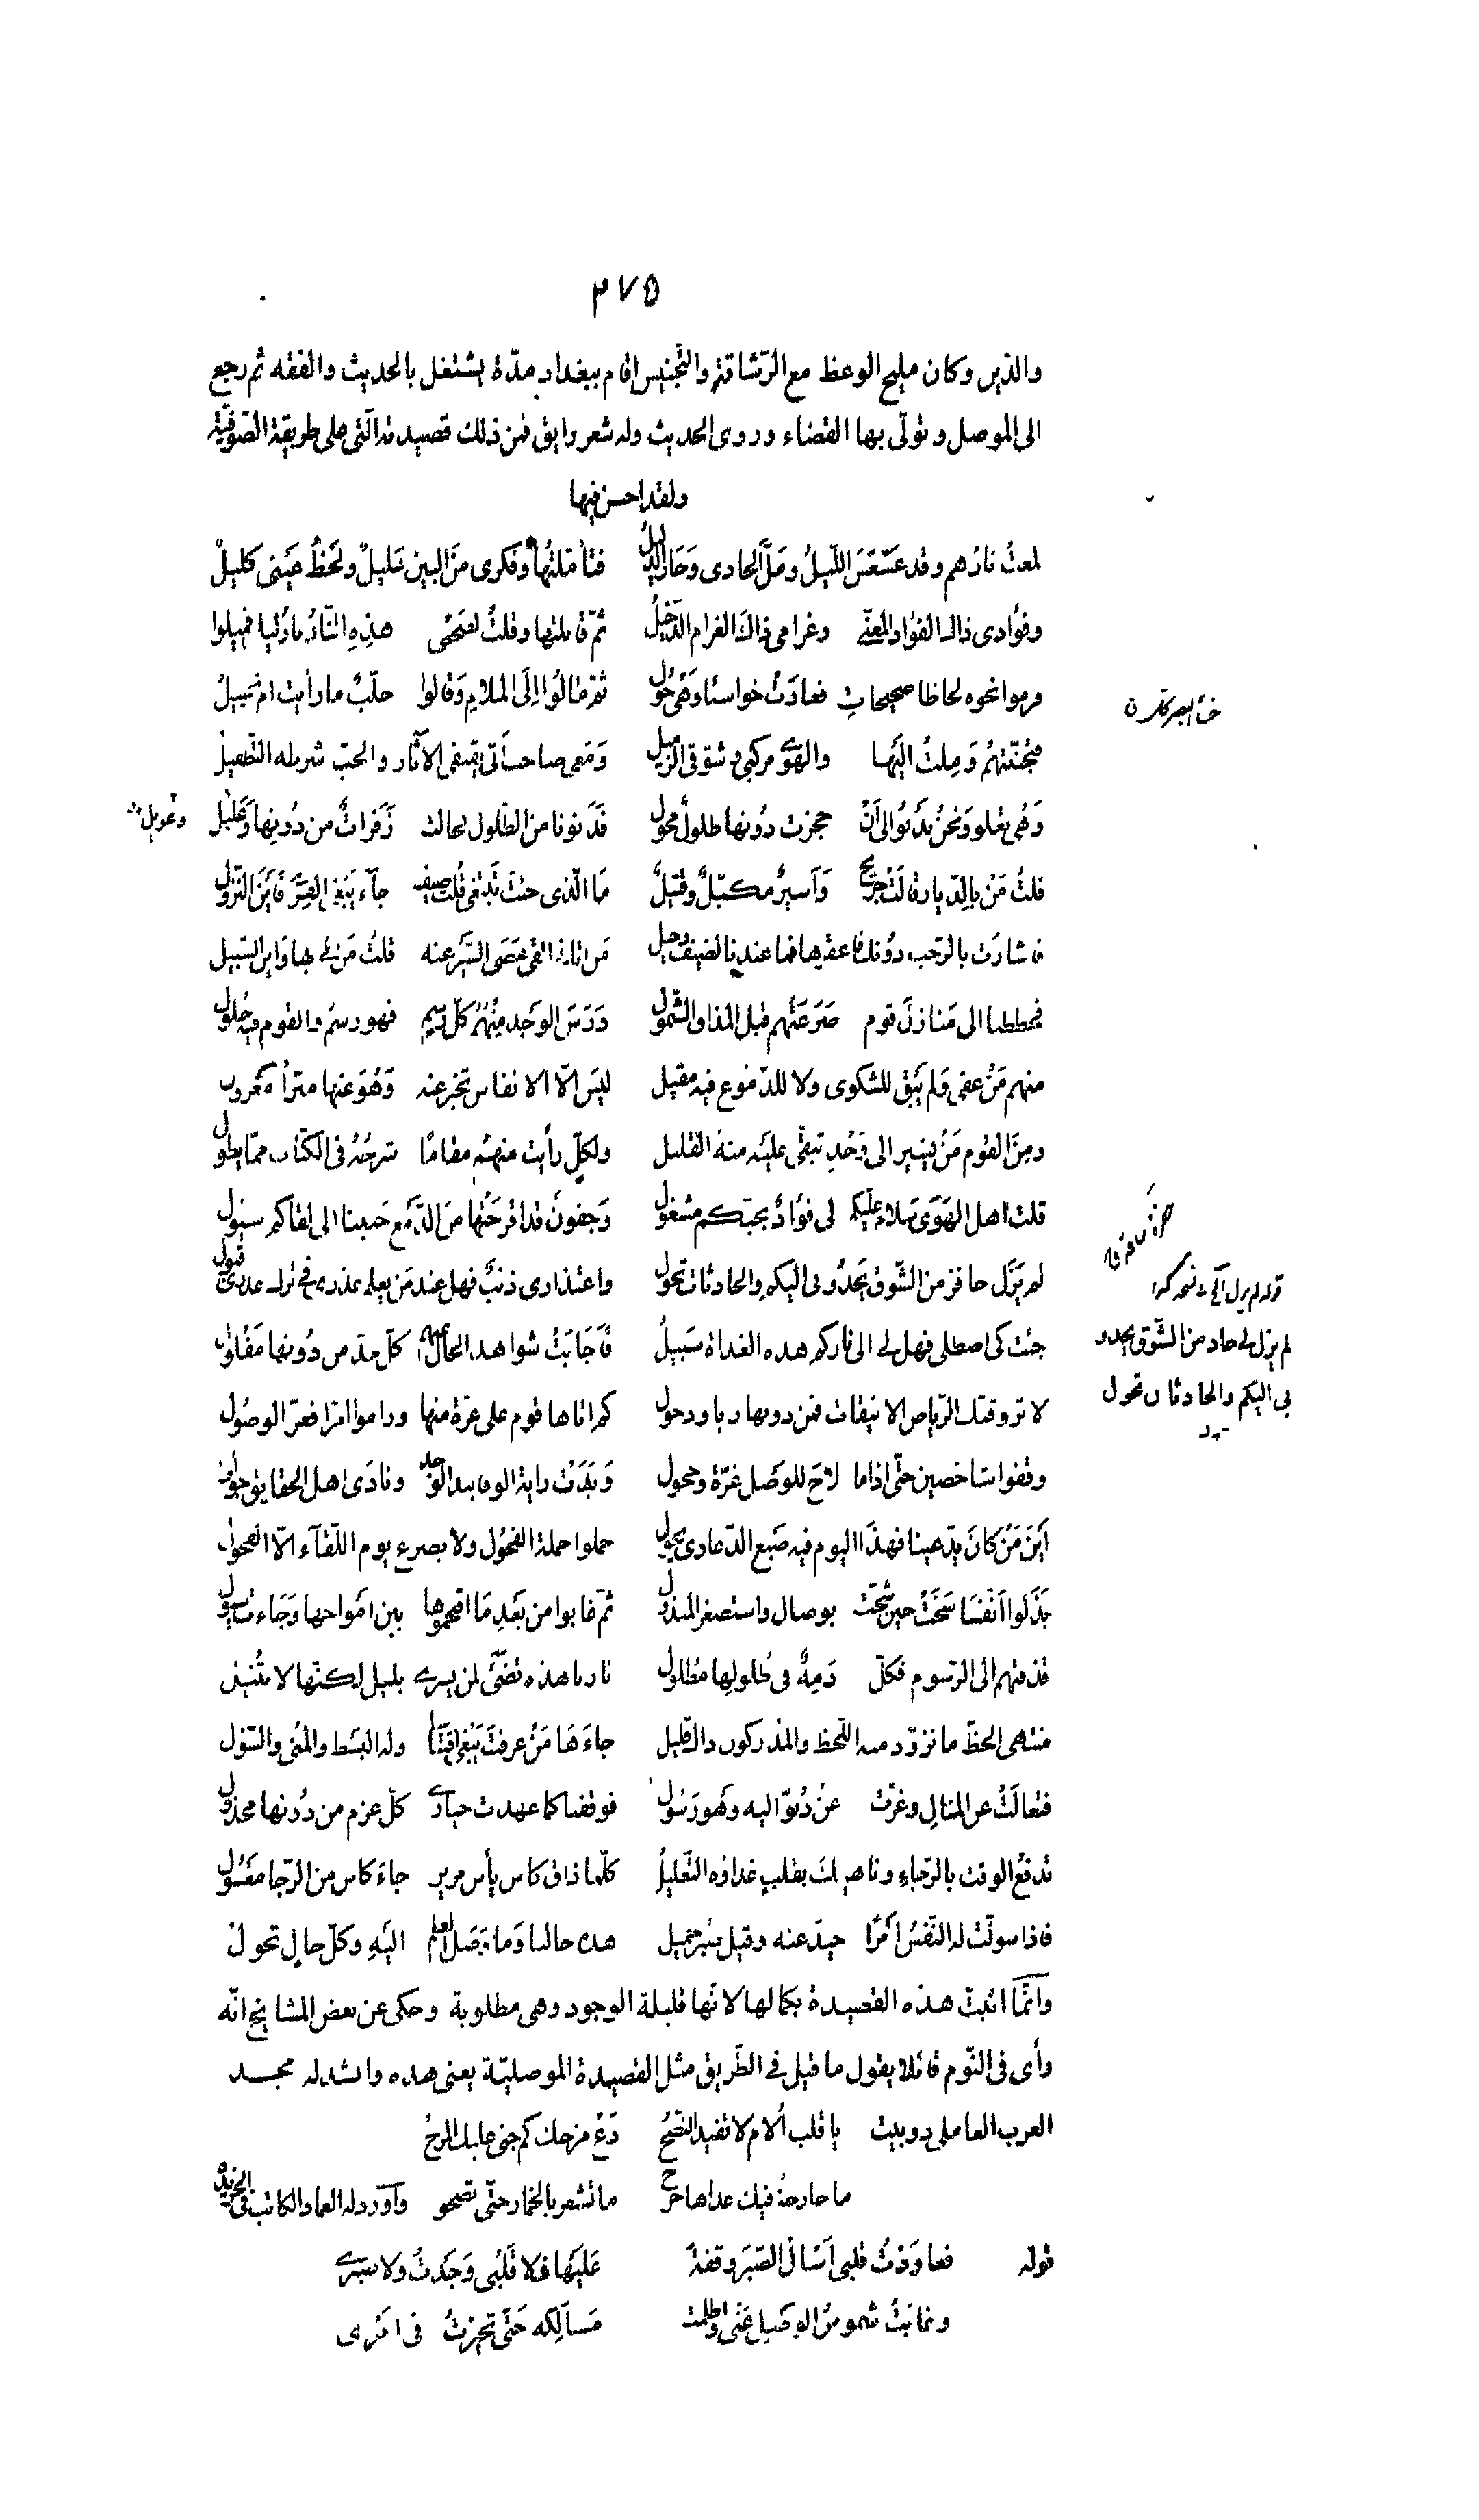 ٢٧٥
والدين وكان مليح الوعظ مع الرّشاقة والتجنيس اقام ببغداد مدّة يشتغل بالحديث والفقه ثم رجع
الى الموصل وتولّى بها القضاء وروى الحديث وله شعر رايق فمن ذلك قصيدته الّتى على طريقة الصّوفيّة
ولقد احسن فيها
لمعتْ نارُهم وقد عَسْعَسَ اللّيلُ وملّ الحادى وَحَار الدّليلُ فتأملتُها وفكرى مِنَ البين عَليلٌ ولَحَظُ عَينى كليلٌ
وفؤادى ذاك الفؤاد المعنّى وغرامى ذاك الغرام الدّخيلُ ثمّ قابلتها وقلتُ لصَحبى هذهِ النّارُ نارُ ليلى فميلوا
فرموا نحوه لحاظا صحيحاتٍ فعادَتْ خواسئًا وَهْىَ حُوْل ثم مَالُوا اِلَى الملامِ وَقالوا خلّبٌ ما رأيت ام تخييلُ
فتجنّبتهُم وَمِلتُ اليَها والهَوى مركبى وشوقى الزميل وَمَعى صاحب اَتى يقتفى الآثار والحبّ شرطه التّطفيل
وَهْى تعلو وَنحنُ نَدنُوا الى اَنْ حجزت دُونها طلول محول فَدَنونا من الطلول فحالت زَفَراتٌ من دُونِها وَغَليل
قلتُ مَنْ بالدّيار قالَتْ جريح وَاَسيرٌ مكبّلٌ وقتيلٌ مَا الّذى جئتَ تَبتغى قُلت ضيف جآء يَبْغى القِرَى فَاَينَ النّزول
فاشارَت بالرّحب دُونك فاعقرها فما عندنا لضيف رحيل مَن اتانا القى عَصَى السَّير عنه قلتُ مَن لى بها وَاين السّبيل
فحططنا الى مَنازلَ قومٍ صَرَعَتْهُم قبل المذاق الشّمول دَرَسَ الوَجد مِنْهُمُ كلّ رسمٍ فهو رسمٌ والقوم فيه حُلول
منهم مَنْ عفى وَلم يَبْق للشكوى ولا للدّموع فيه مقيل ليسَ الّا الانفاس تخبر عنه وَهُوَ عنها مبرأ معزول
ومِنَ القوم مَنْ يشير الى وَجْدٍ تبقّى عليه منهُ القليل ولكلٍّ رأيت منهم مقامًا شرحُهُ فى الكتاب ممّا يطول
قلت اهل الهَوَى سَلامٌ عليكم لى فؤادٌ بحبّكم مشغول وَجفونٌ قد اقرحَتْها مِنَ الدّمع حَثيثا الى لقاكم سيول
لم يَزَل حافز من الشّوق يَحدُونى اليكم والحادثات تحول واعتذارى ذنبٌ فهل عند مَن يعلم عذرى فى ترك عذرى قبول
جئت كى اصطلى فهل لى الى ناركم هذه الغداة سَبيلُ فَاَجابَتْ شواهد الحال عنهم كلّ حدّ من دُونها مَفْلول
لا تروقنّك الرّياض الانيقات فمن دونها ربا ودحول كم اتاها قوم على غرّة منها وراموا امرا فعزّ الوصُول
وقفوا شاخصين حتّى اذا ما لاحَ للوَصل غرّة وحجول وَبَدَتْ راية الوفا بيد الوَجد ونادَى اهل الحقايق جولوا
اَيْنَ مَنْ كانَ يدّعينا فهذَا اليوم فيه صَبغ الدّعاوى يحول حملوا حملة الفحُول ولا يصرع يوم اللّقآء الّا الفحول
بَذَلوا اَنْفسًا سَخَتْ حين شحّت بوصال واستصغر المبذول ثمّ غابوا من بَعْدِ مَا اقتحموها بين امواجها وَجَاءت سيول
قذفتهم الى الرّسوم فكلّ دَمِهُ فى طُلولها مَطلول نارنا هذه تضَيئى لمن يسرى بليل لكنّها لا تُنيل
منتهى الحظّ ما تزوّد منه اللّحظ والمدركون ذاك قليل جاءَهَا مَنْ عرفتَ يَبْغى اقتِبَاسًا وله البَسْط والمُنى والسّؤل
فتعالَتْ عن المنالِ وعَزّت عنْ دُنوّ اليه وهُو رَسُول فوقفنا كما عهدت حيارى كلّ عزم من دُونها مخذول
ندفعُ الوقت بالرّجاءِ وناهيك بقلبٍ غذاؤه التّعليلُ كلّما ذاق كاس يأس مرير جاءَ كاس من الرّجا معَسُول
فاذا سولّت له النّفسُ اَمْرًا حيد عنه وقيل صبر جميل هذه حالنا وَما وَصَل العلم اليَهِ وكلّ حال تحول
وانّما اثبتّ هذه القصيدة بكمالها لانّها قليلة الوجود وهى مطلوبة وحكى عن بعض المشايخ انّه
رأى فى النّوم قائلا يقول ما قيل فى الطّريق مثل القصيدة الموصليّة يعنى هذه وانشد له مجد
العرب العاملى دوبيت يا قلب اُلام لا تفيد النّصحُ دَعْ مزحك كم جنى عليك المزحُ
ما جارحة فيك عداها جرح ما تشعر بالخمار حتّى تصحو وآورد له العماد الكاتب فى الخريدة
قوله فعاوَدْتُ قلبى اَسْال الصّبَر وقفةً عَليَها فلا قَلْبى وَجَدتُ ولا صبرى
وغابَتْ شموسُ الوصَل عَنّى واظلمت مَسالِكه حَتّى تحيّرتُ فى امْرى
وعويل
لم يزل لى حاد من الشّوق يحدو
بى اليكم والحادثات تحول